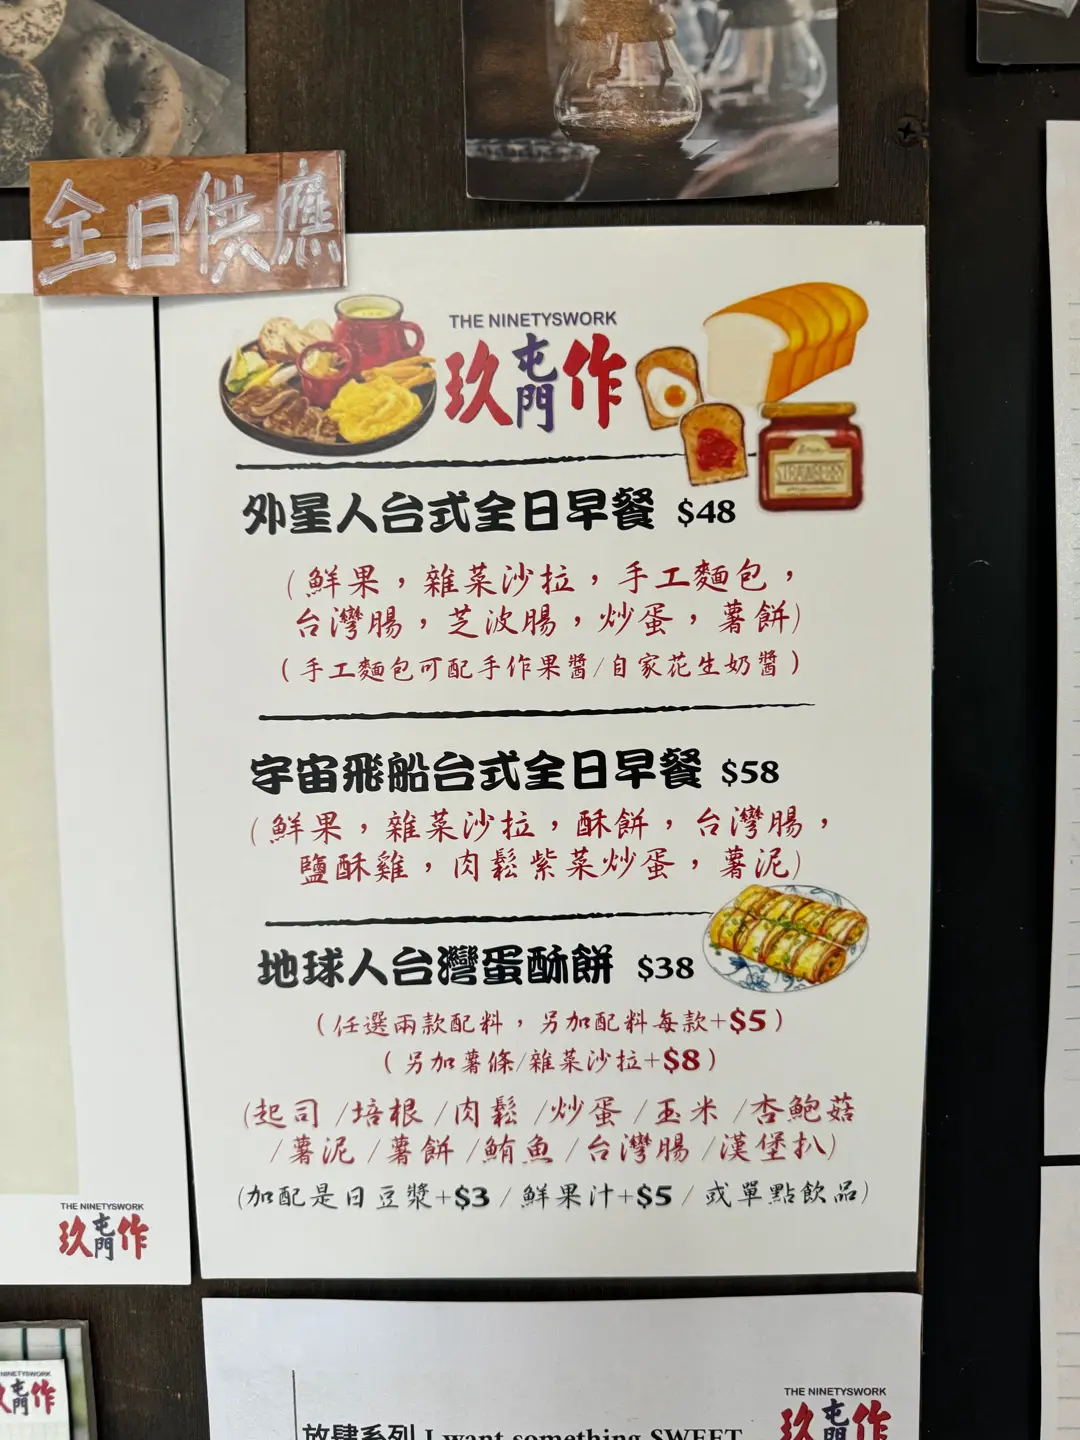 全日供應
THE NINETYSWORK
玖屯門作
STRAWBERRY
外星人台式全日早餐 $48
(鮮果，雜菜沙拉，手工麵包，
台灣腸，芝波腸，炒蛋，薯餅)
(手工麵包可配手作果醬/自家花生奶醬)
宇宙飛船台式全日早餐 $58
(鮮果，雜菜沙拉，酥餅，台灣腸，
鹽酥雞，肉鬆紫菜炒蛋，薯泥)
地球人台灣蛋酥餅 $38
(任選兩款配料，另加配料每款+$5)
(另加薯條/雜菜沙拉+$8)
(起司/培根/肉鬆/炒蛋/玉米/杏鮑菇
/薯泥/薯餅/鮪魚/台灣腸/漢堡扒)
(加配是日豆漿+$3/鮮果汁+$5/或單點飲品)
THE NINETYSWORK
玖屯門作
THE NINETYSWORK
玖屯門作
NINETYSWORK
屯門作
放肆系列 I want something SWEET